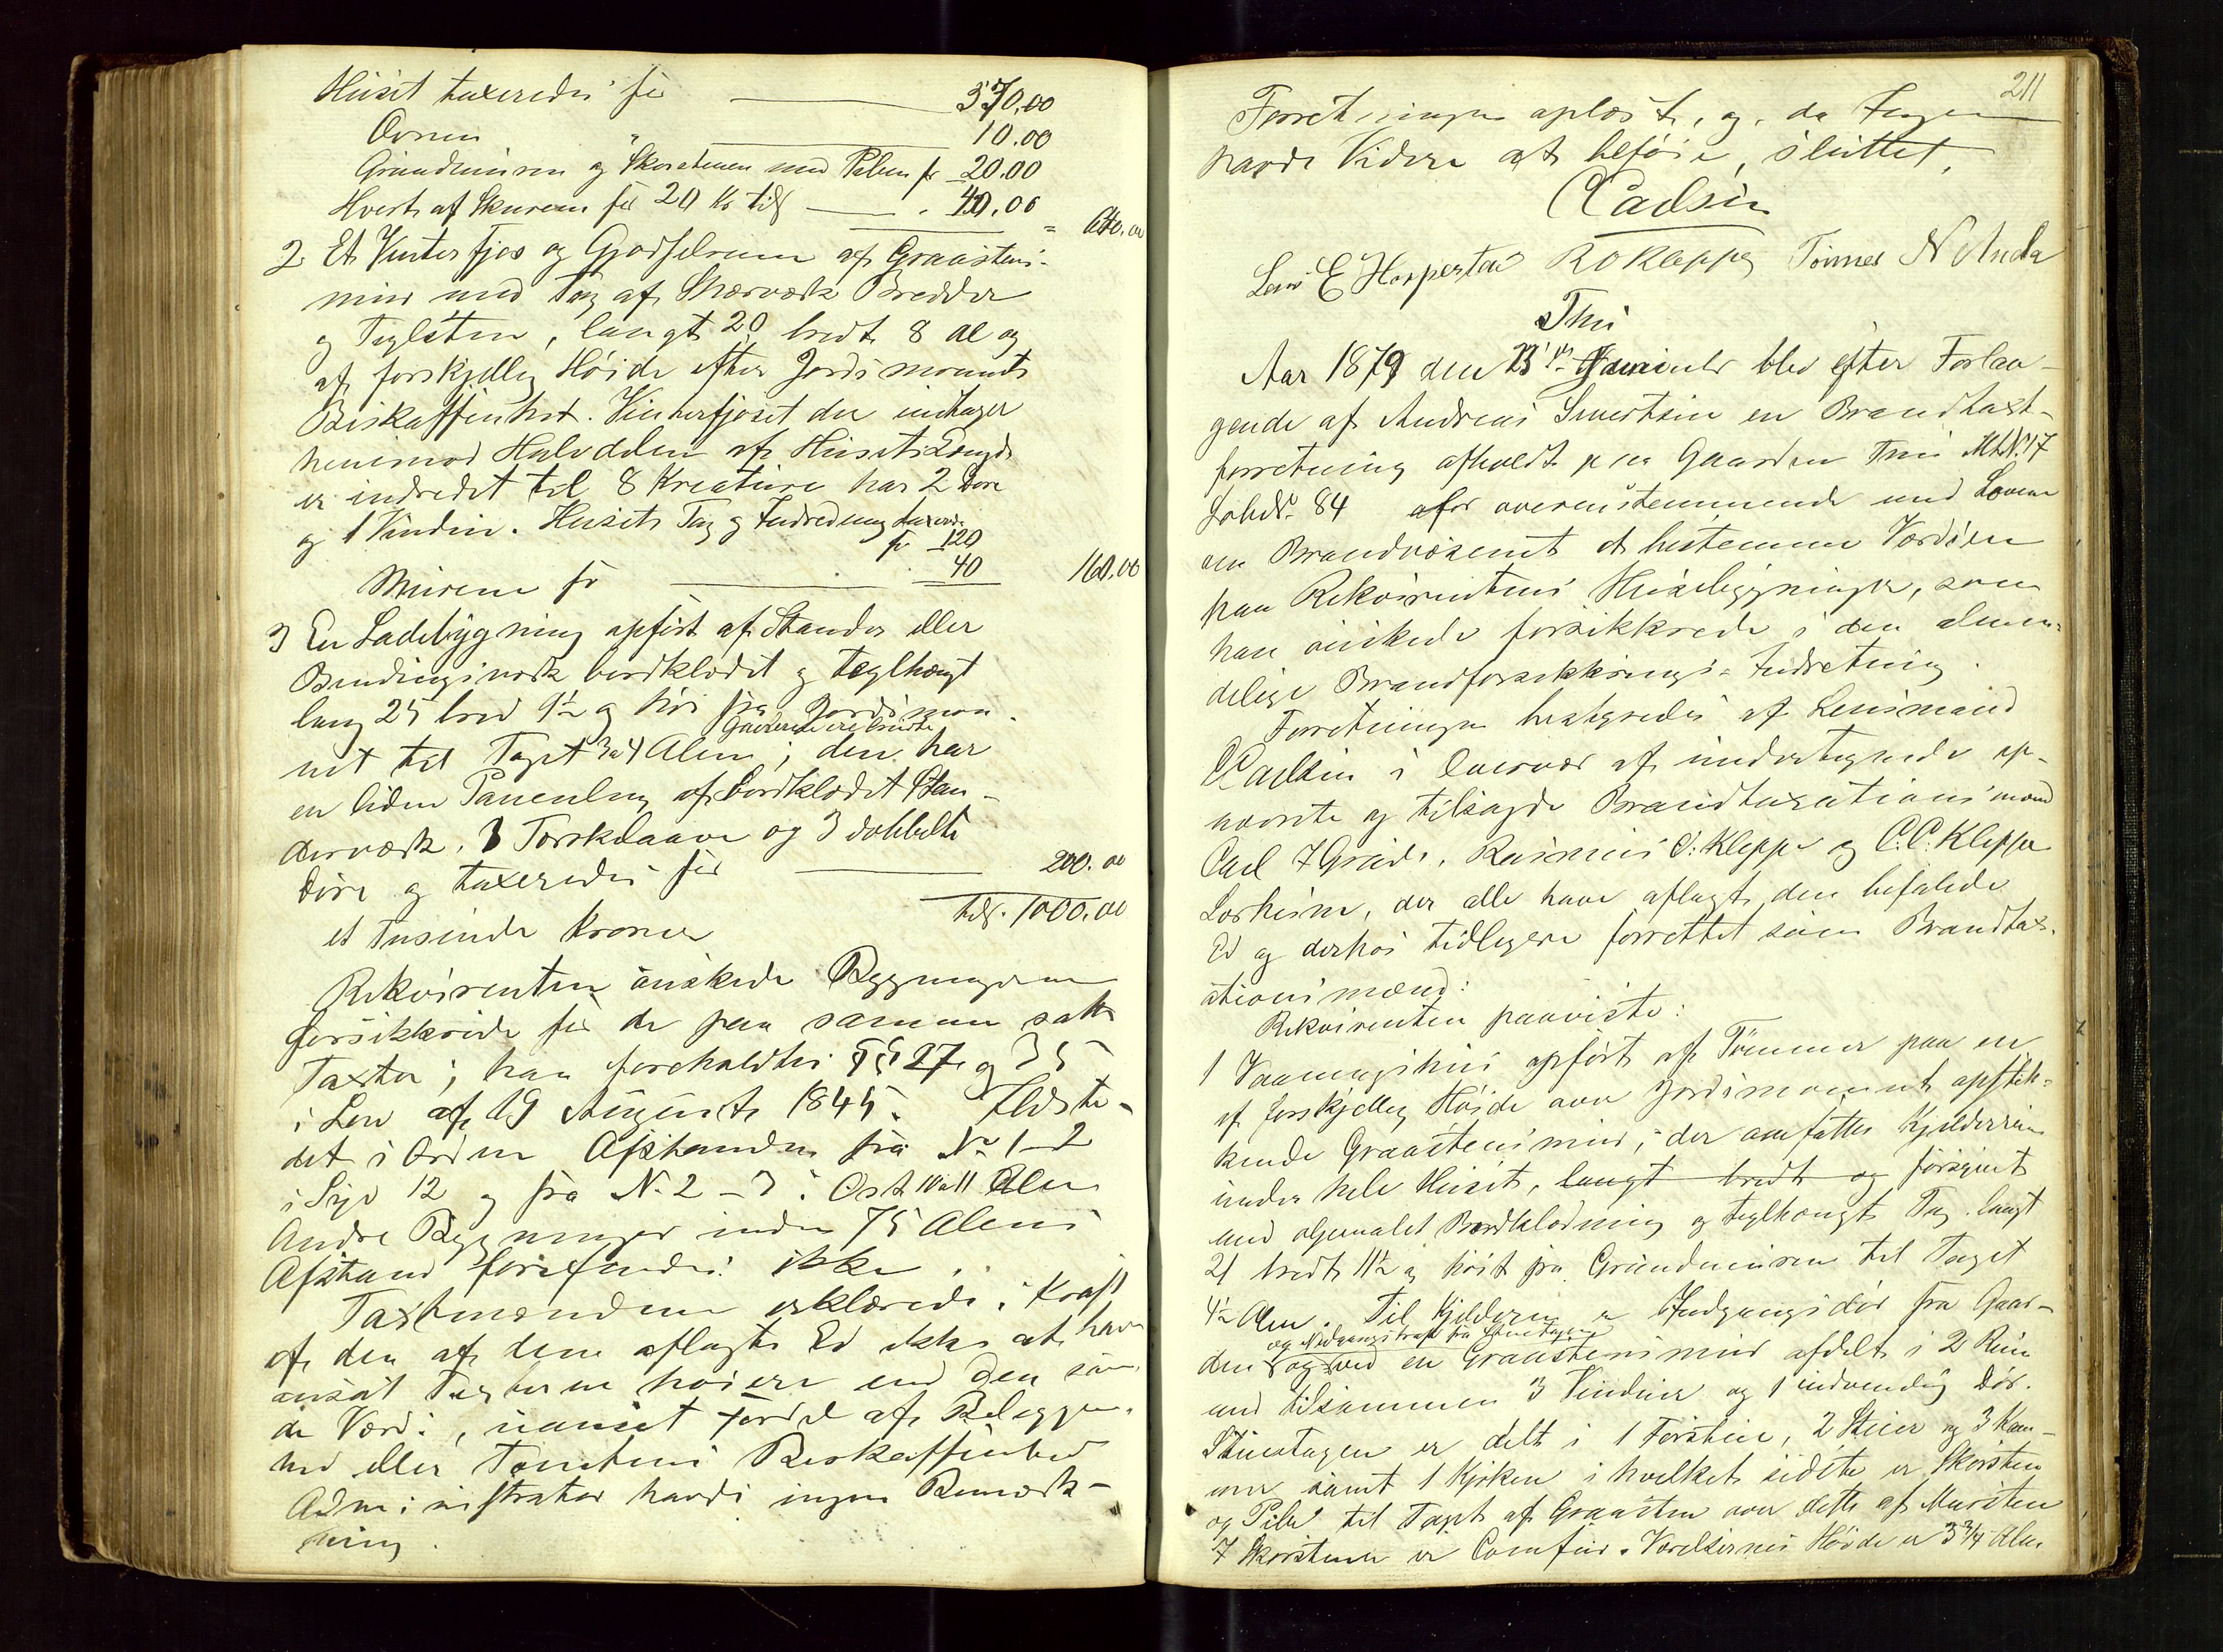 Huset taxeredes for 570.00
Ovnen " 10.00
Grundmuren og Skorstenen med Piben for 20.00
Hvert af Skurene for 20 Kr tils 40.00 = 640.00
2 Et Vinterfjøs og Gjødselrum af Graastens-
mur med Tag af Skærværk Bredder
og Teglsten, langt 20 bredt 8 al og
af forskjellig Høide efter Jordsmonnets
Beskaffenhet. Vinterfjøset der indtager
henimod Halvdelen af Husets Længde
er indredet til 8 Kreature har 2 Døre
og 1 Vindue. Husets Tag og Indredning taxeredes
for 120
Murene for 40 160.00
3 En Ladebygning opført af Stander eller
Bindingsverk bordklædet og teglhængt
lang 25 bred 9½ og høi fra Jordsmon-
net til Taget 3 a 4 Alen; den har
en liden Paneenbug af bordklædet Stan-
derværk. 3 Torskelaaver og 3 dobbelte
Døre og taxeredes for 200.00
et Tusinde Kroner tils. 1000.00
Rekvirenten ønskede Bygningerne
forsikkrede for de paa samme satte
Taxter; han foreholdtes §§ 27 og 35
i Lov af 19 August 1845. Ildste-
det i Orden Afstanden fra No 1–2
i Syd 12 og fra No. 2–3 i Ost 10 a 11 Alen
Andre Bygninger inden 75 Alens
Afstand forefindes ikke.
Taxtmændene erklærede i Kraft
af den af dem aflagte Ed ikke at have
ansat Taxterne høiere end den san-
de Værdi, uanset Fordel af Beliggen-
hed eller Tomtens Beskaffenhed
Administrator havde ingen Bemærk-
ning.
211
Forretningen oplæst, og, da Ingen
havde Videre at beføie, sluttet.
CCarlsen
Lars E Horpestad R O Kleppe Tønnes N Anda
Thu
Aar 1879 den 23de Januar blev efter Forlan-
gende af Andreas Sivertsen en Brandtaxt-
forretning afholdt paa Gaarden Thu Mt.N.17
Løbe No 84 for overensstemmende med Loven
om Brandvæsenet at bestemme Værdien
paa Rekvirentens Husebygninger, som
han ønskede forsikkrede i den almin-
delige Brandforsikkrings-Indretning.
Forretningen bestyredes af Lensmand
CCarlsen i Overvær af undertegnede op-
nævnte og tilsagde Brandtaxationsmænd
Carl Grude, Rasmus O. Kleppe og C.C. Kleppe
Lorheim, der alle have aflagt den befalede
Ed og derhos tidligere forrettet som Brandtax-
ationsmænd:
Rekvirenten paaviste:
1 Vaaningshus opført af Tømmer paa en
af forskjellig Høide over Jordsmonnet opstik-
kende Graastensmur, der omfatter Kjelderrum
under hele Huset, langt bredt og forsynet
med oljemalet Bordklædning og teglhængt Tag. langt
21 bredt 11½ og høit fra Grundmuren til Taget
4½ Alen. Til Kjelderen er Indgangsdør fra Gaar-
og Nedgangstrap fra Stuetagen
den og ved en Graastensmur afdelt i 2 Rum
med tilsammen 3 Vinduer og 1 indvendig Dør.
Stuetagen er delt i 1 Forstue, 2 Stuer og 3 Kam-
mer samt 1 Kjøken i hvilket sidste er Skorsten
og Pibe til Taget af Graasten over dette af Mursten
I Skorstenen er Comfur. Værelsernes Høide er 3¾ Alen